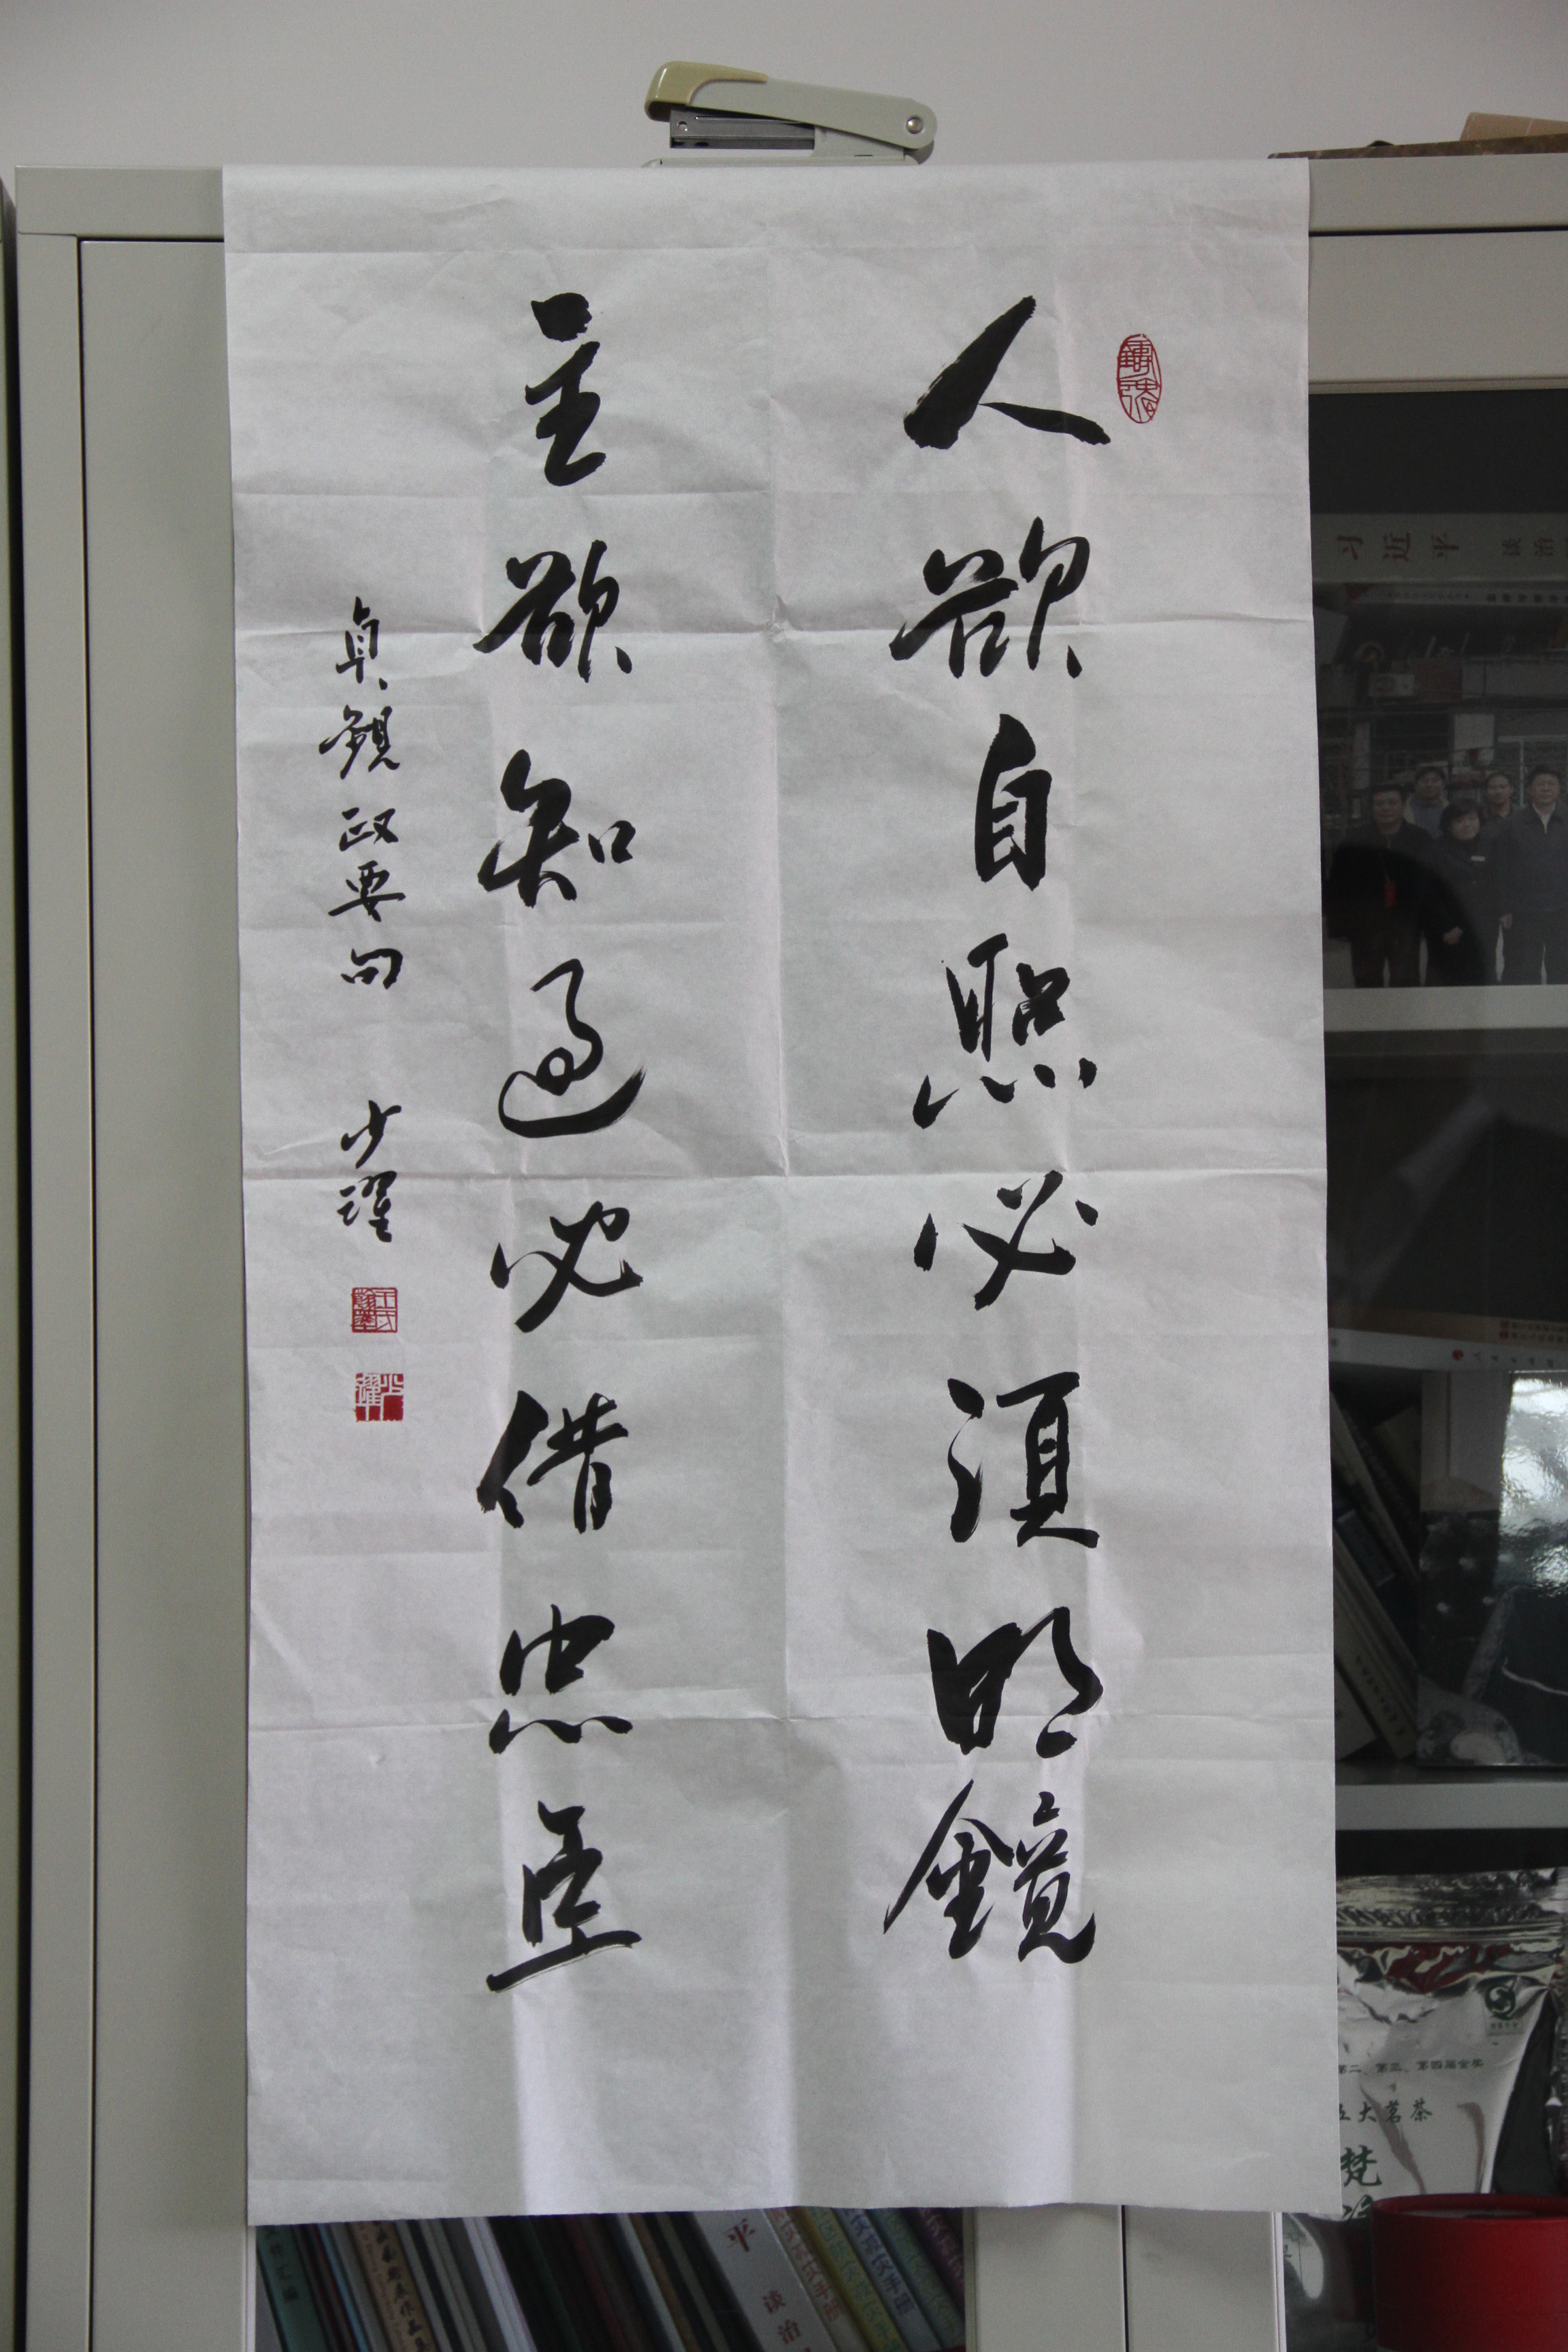 人欲自照必須明鏡
主欲知過必借忠臣
貞觀政要句 少濯
习近平 谈治
第二、第三、第四届金奖
五大茗茶
梵
平 谈治